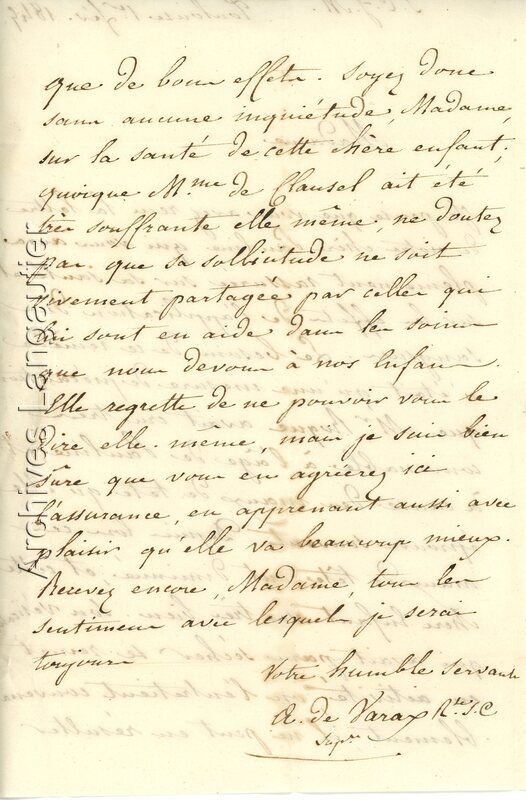 que de bons effets. Soyez donc
sans aucune inquiétude, Madame,
sur la santé de cette chère enfant;
quoique Mme de Clausel ait été
très souffrante elle même, ne doutez
pas que sa sollicitude ne soit
vivement partagée par celles qui
lui sont en aide dans les soins
que nous devons à nos Enfans.
Elle regrette de ne pouvoir vous le
dire elle-même, mais je suis bien
sûre que vous en agréerez ici
l'assurance, en apprenant aussi avec
plaisir qu'elle va beaucoup mieux.
Recevez encore, Madame, tous les
sentimens avec lesquels je serai
toujours
Votre humble servante
A. de Varax Rse S.C
Supre
Archives Langautier